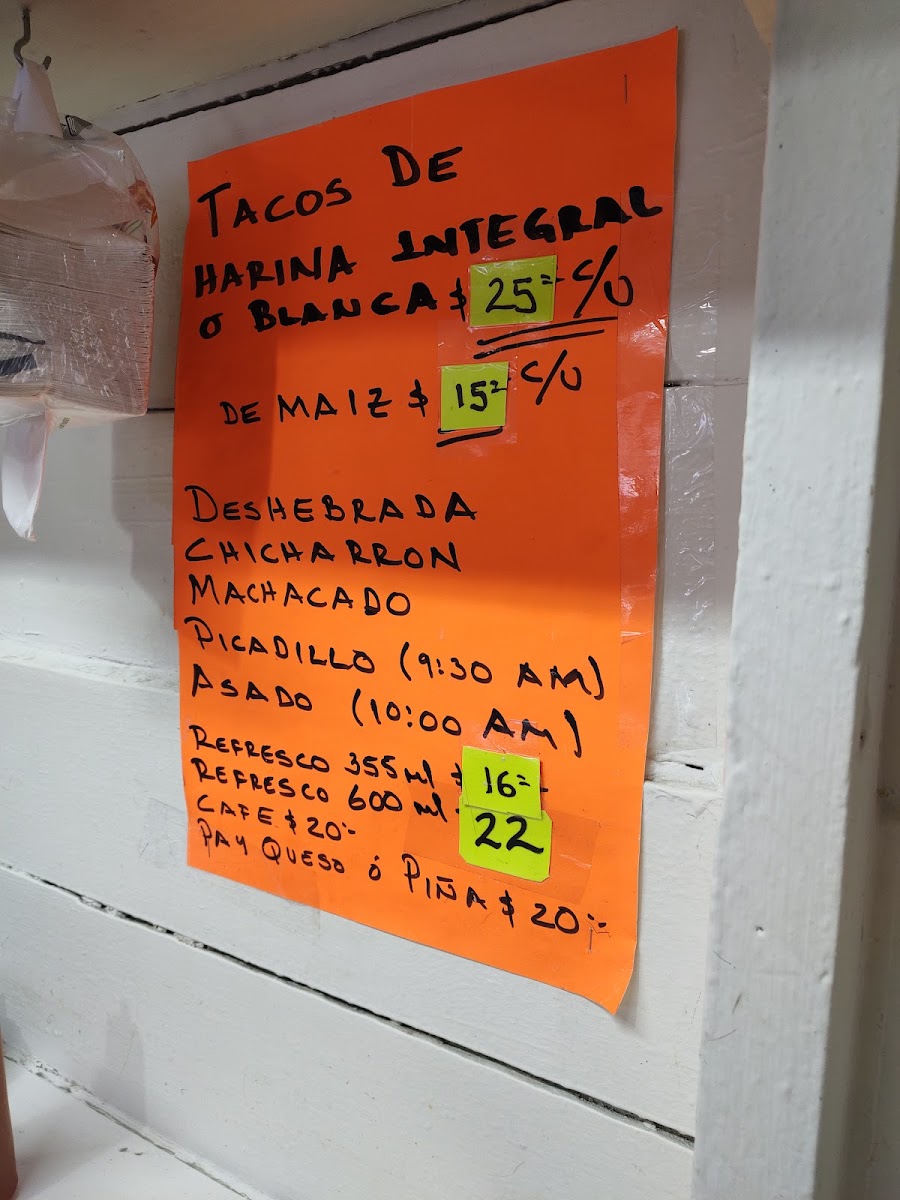 TACOS DE
HARINA INTEGRAL
O BLANCA $ 25= c/u
DE MAIZ $ 15= c/u
DESHEBRADA
CHICHARRON
MACHACADO
PICADILLO (9:30 AM)
ASADO (10:00 AM)
REFRESCO 355 ml $ 16=
REFRESCO 600 ml 22
CAFE $ 20:-
PAY QUESO ó PIÑA $ 20:-